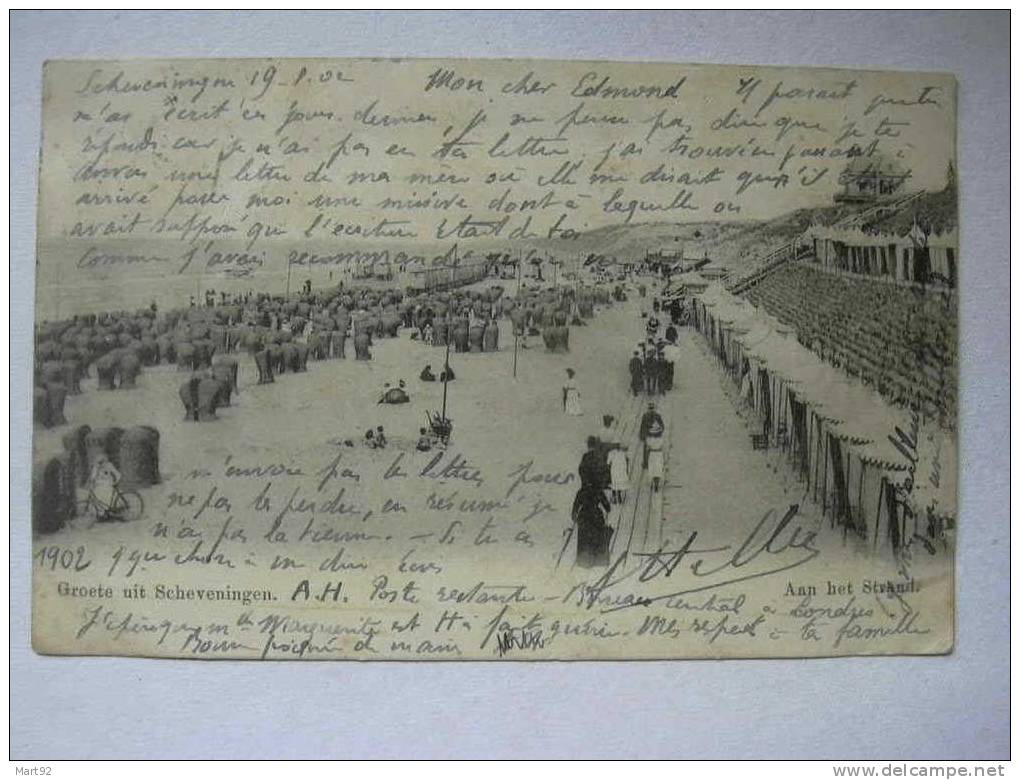 Scheveningen 19-8.02 Mon cher Edmond Il parait que tu
m'as écrit ces jours derniers, je ne peux pas dire que je te
réponds car je n'ai pas eu ta lettre, j'ai trouvé en passant à
Anvers une lettre de ma mère où elle me disait qu'il était
arrivé pour moi une missive dont à laquelle on
avait supposé que l'écriture était de toi
Comme j'avais recommandé
n'envoie pas les lettres pour
ne pas les perdre, en résumé je
n'ai pas la tienne. - Si tu as
1902 qque chose à me dire écris
Groete uit Scheveningen. Aan het Strand.
A.H. Poste restante - Bureau central à Londres
J'espère que Mlle Marguerite est tt à fait guérie. Mes respects à ta famille
Bonne poignée de main
Mart92
www.delcampe.net